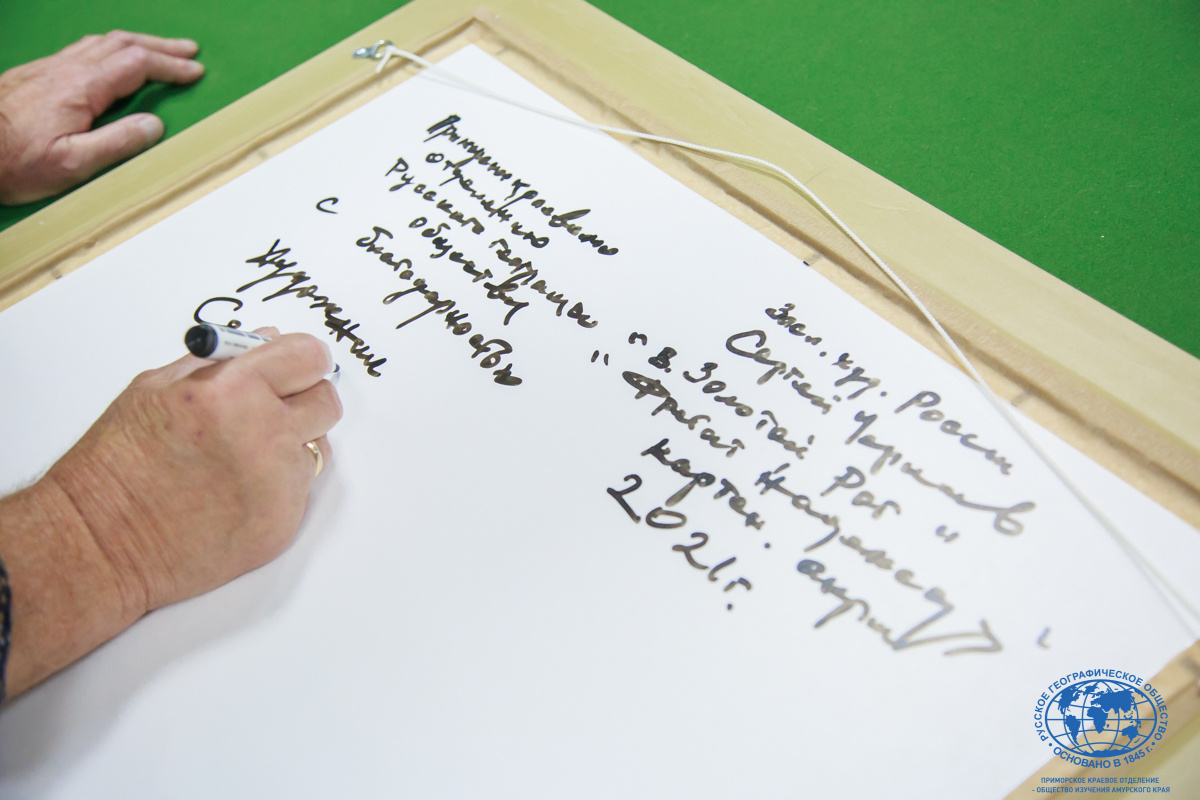 Приморскому краевому
отделению
Русского географ.
обществу
с благодарностью
Художник
Се
Засл. худ. России
Сергей Черкасов
"В. Золотой Рог"
"Фрегат Надежда"
картон. акрил
2021г.
РУССКОЕ ГЕОГРАФИЧЕСКОЕ ОБЩЕСТВО
• ОСНОВАНО В 1845 г. •
ПРИМОРСКОЕ КРАЕВОЕ ОТДЕЛЕНИЕ
- ОБЩЕСТВО ИЗУЧЕНИЯ АМУРСКОГО КРАЯ